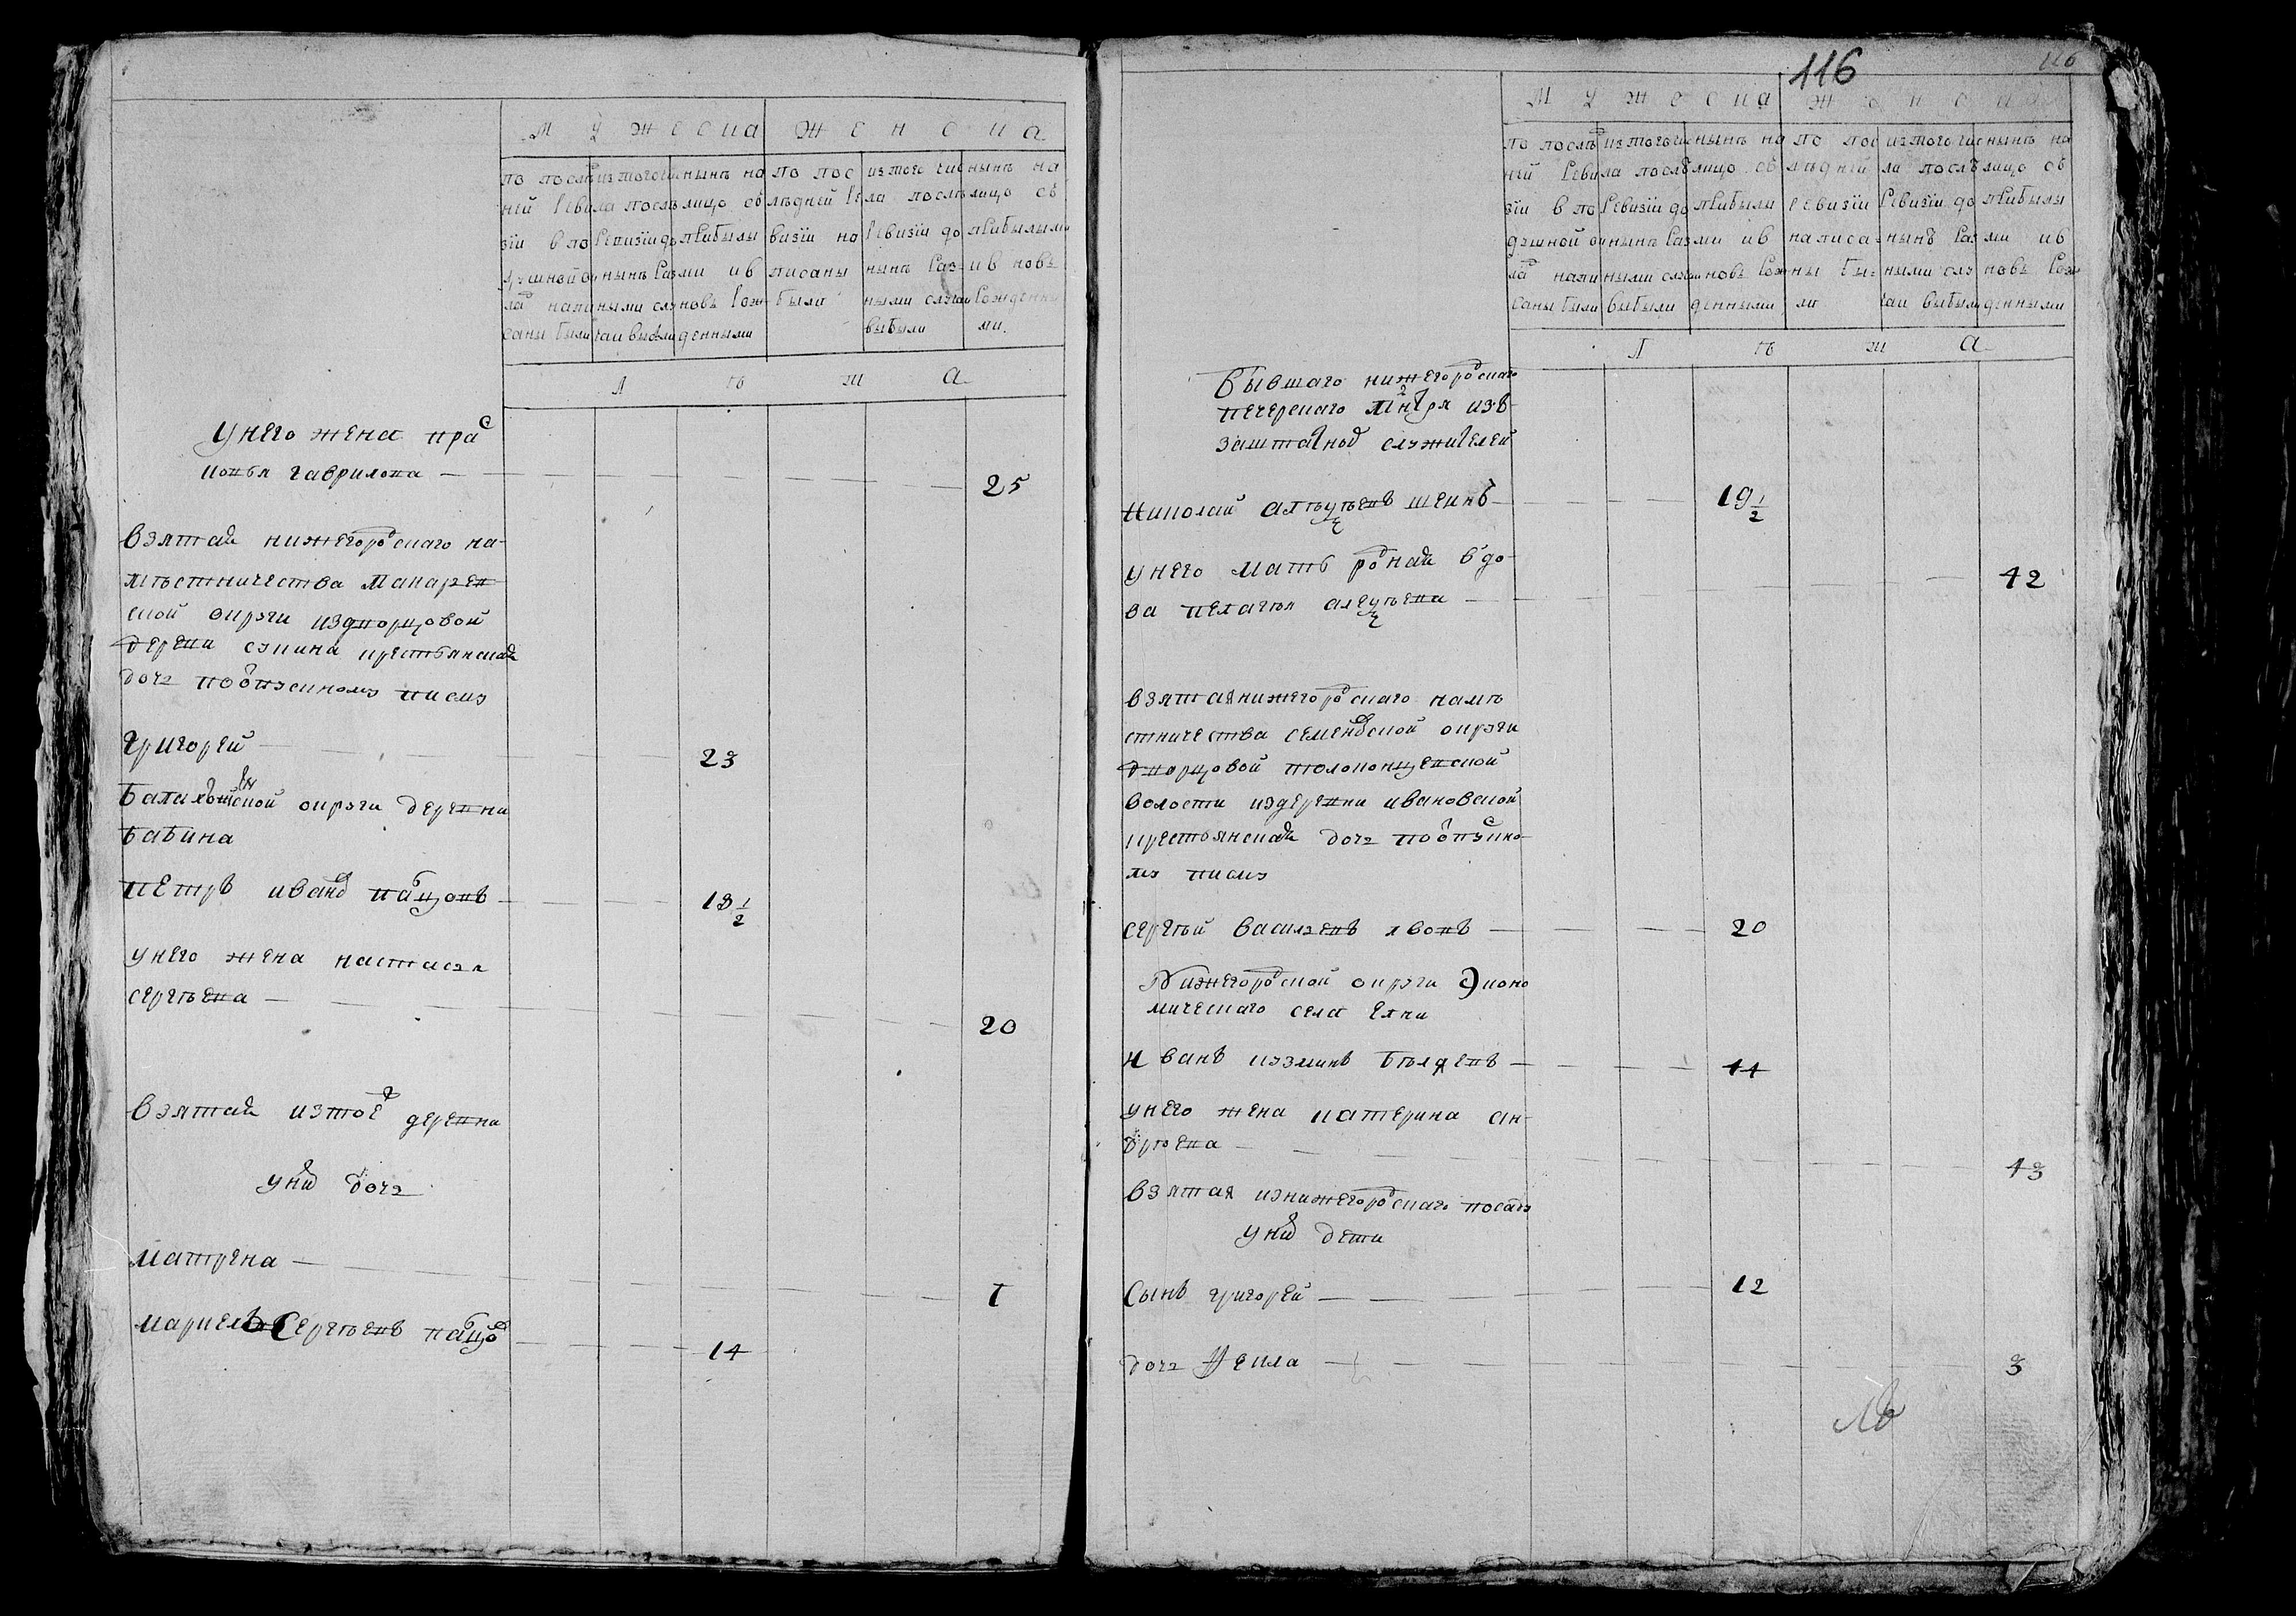 Мужеска Женска
по послѣдней ревизіи в подушной окладъ написаны были
изтого числа послѣ ревизіи до нынѣ разными случаи выбыли
нынѣ на лицо съ прибылыми и в новь рожденными
по последней ревизіи написаны были
изтого числа послѣ ревизіи до нынѣ разными случаи выбыли
нынѣ на лицо съ прибылыми и в новь рожденными
Л ѣ т а
унего жена прас
ковья гаврилова — 25
взятая нижегородскаго на-
мѣстничества макарьев
ской округи издворцовой
деревни сукина крестьянская
дочь поотпускному писму
григорей — 23
балахонской округи деревни
бабина
петръ иванов — 13 1/2
унего жена настасья
сергѣева — 20
взятая изтоей деревни
уних дочь
матрена — 1
маркелъ Сергѣевъ — 14
116
116
Мужеска Женска
по послѣдней ревизіи в подушной окладъ написаны были
изтого числа послѣ ревизіи до нынѣ разными случаи выбыли
нынѣ на лицо съ прибылыми и в новь рожденными
по последней ревизіи написаны были
изтого числа послѣ ревизіи до нынѣ разными случаи выбыли
нынѣ на лицо съ прибылыми и в новь рожденными
Л ѣ т а
бывшаго нижегородскаго
печерскаго мнтря изъ
заштатнов служителей
Николай шеинъ — 19 1/2
унего мать родная вдо-
ва пелагѣя — 42
взятая нижегородскаго намѣ
стничества семеновской округи
дворцовой толоконцевской
волости издеревни ивановской
крестьянская дочь поотпускно-
му писму
сергѣй васильевъ львовъ — 20
Нижегородской округи Эконо
мическаго села елни
иванъ кузминъ бѣляевъ — 44
унего жена катерина ан-
дрѣева — 43
взятая изнижегородскаго посаду
уних дети
Сынъ григорей — 12
дочь Фекла — 3